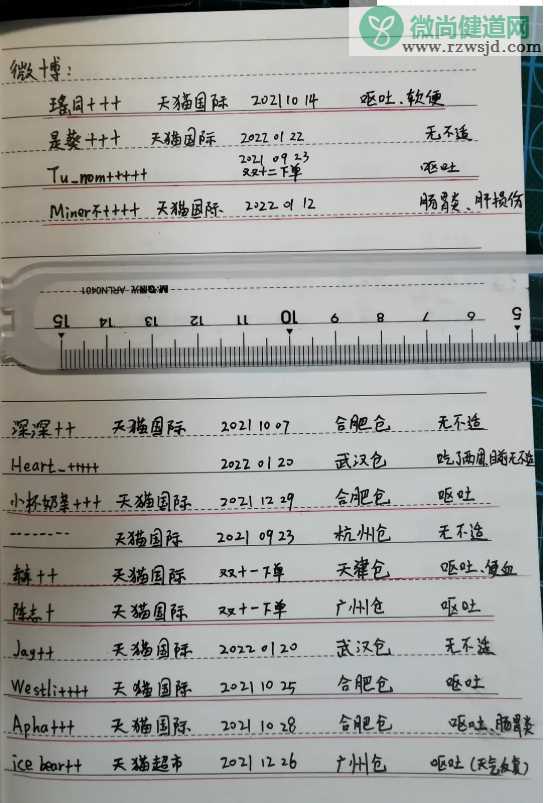 微尚健道网
www.rzwsjd.com
微博:
瑤同+++ 天猫国际 20211014 呕吐、软便
是葵+++ 天猫国际 20220122 无不适
Tu_nom+++++ 20210923 双十二下单 呕吐
Minor不++++ 天猫国际 20220112 肠胃炎、肝损伤
M&G晨光 ARLN0401
15 14 13 12 11 10 9 8 7 6 5
深深++ 天猫国际 20211007 合肥仓 无不适
Heart_+++++ 20220120 武汉仓 吃了两周,目前无不适
小杯奶茶+++ 天猫国际 20211229 合肥仓 呕吐
-------- 天猫国际 20210923 杭州仓 无不适
++ 天猫国际 双十一下单 天津仓 呕吐、便血
陈志+ 天猫国际 双十一下单 广州仓 呕吐
Jay++ 天猫国际 20220120 武汉仓 无不适
Westli++++ 天猫国际 20211025 合肥仓 呕吐
Apha+++ 天猫国际 20211028 合肥仓 呕吐、肠胃炎
ice bear++ 天猫超市 20211226 广州仓 呕吐(天气